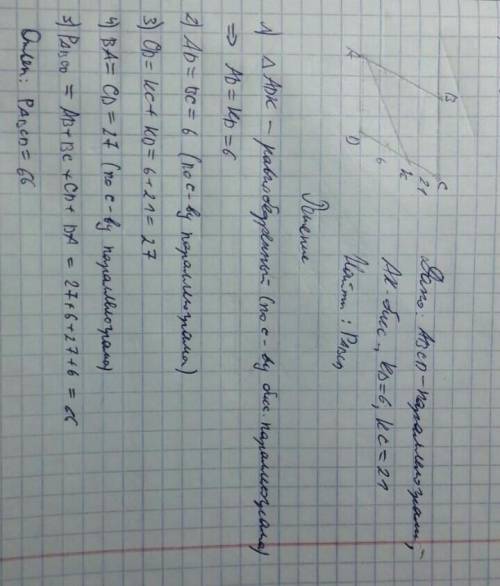 Дано: ABCD – параллелограмм,
AK – бисс., KD = 6, KC = 21
Найти: PABCD
B
C
21
K
6
A
D
Решение
1) △ ADK – равнобедренный (по с-ву бис. параллелограма)
⇒ AD = KD = 6
2) AD = BC = 6 (по с-ву параллелограма)
3) CD = KC + KD = 6 + 21 = 27
4) BA = CD = 27 (по с-ву параллелограма)
5) PABCD = AB + BC + CD + DA = 27 + 6 + 27 + 6 = 66
Ответ: PABCD = 66